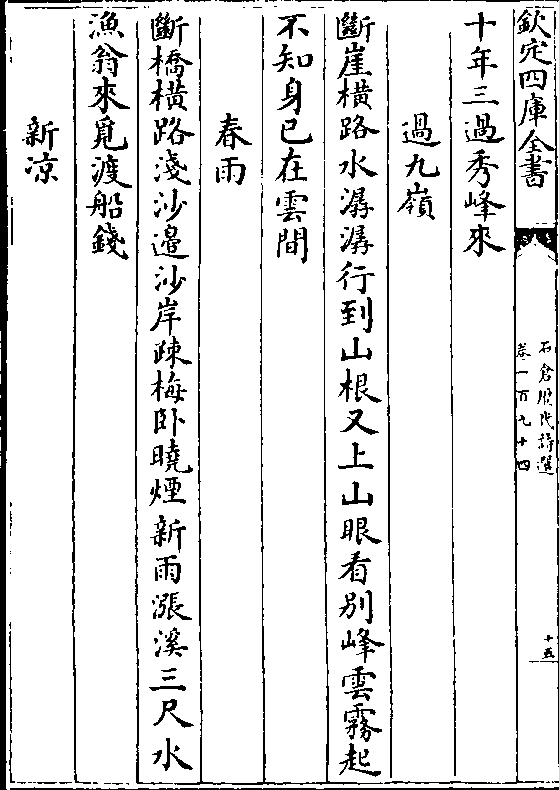 欽定四庫全書
石倉歷代詩選
卷一百九十四
十五
十年三過秀峰來
過九嶺
斷崖橫路水潺潺行到山根又上山眼看別峰雲霧起
不知身已在雲間
春雨
斷橋橫路淺沙邉沙岸疎梅卧曉煙新雨漲溪三尺水
漁翁來覓渡船錢
新凉